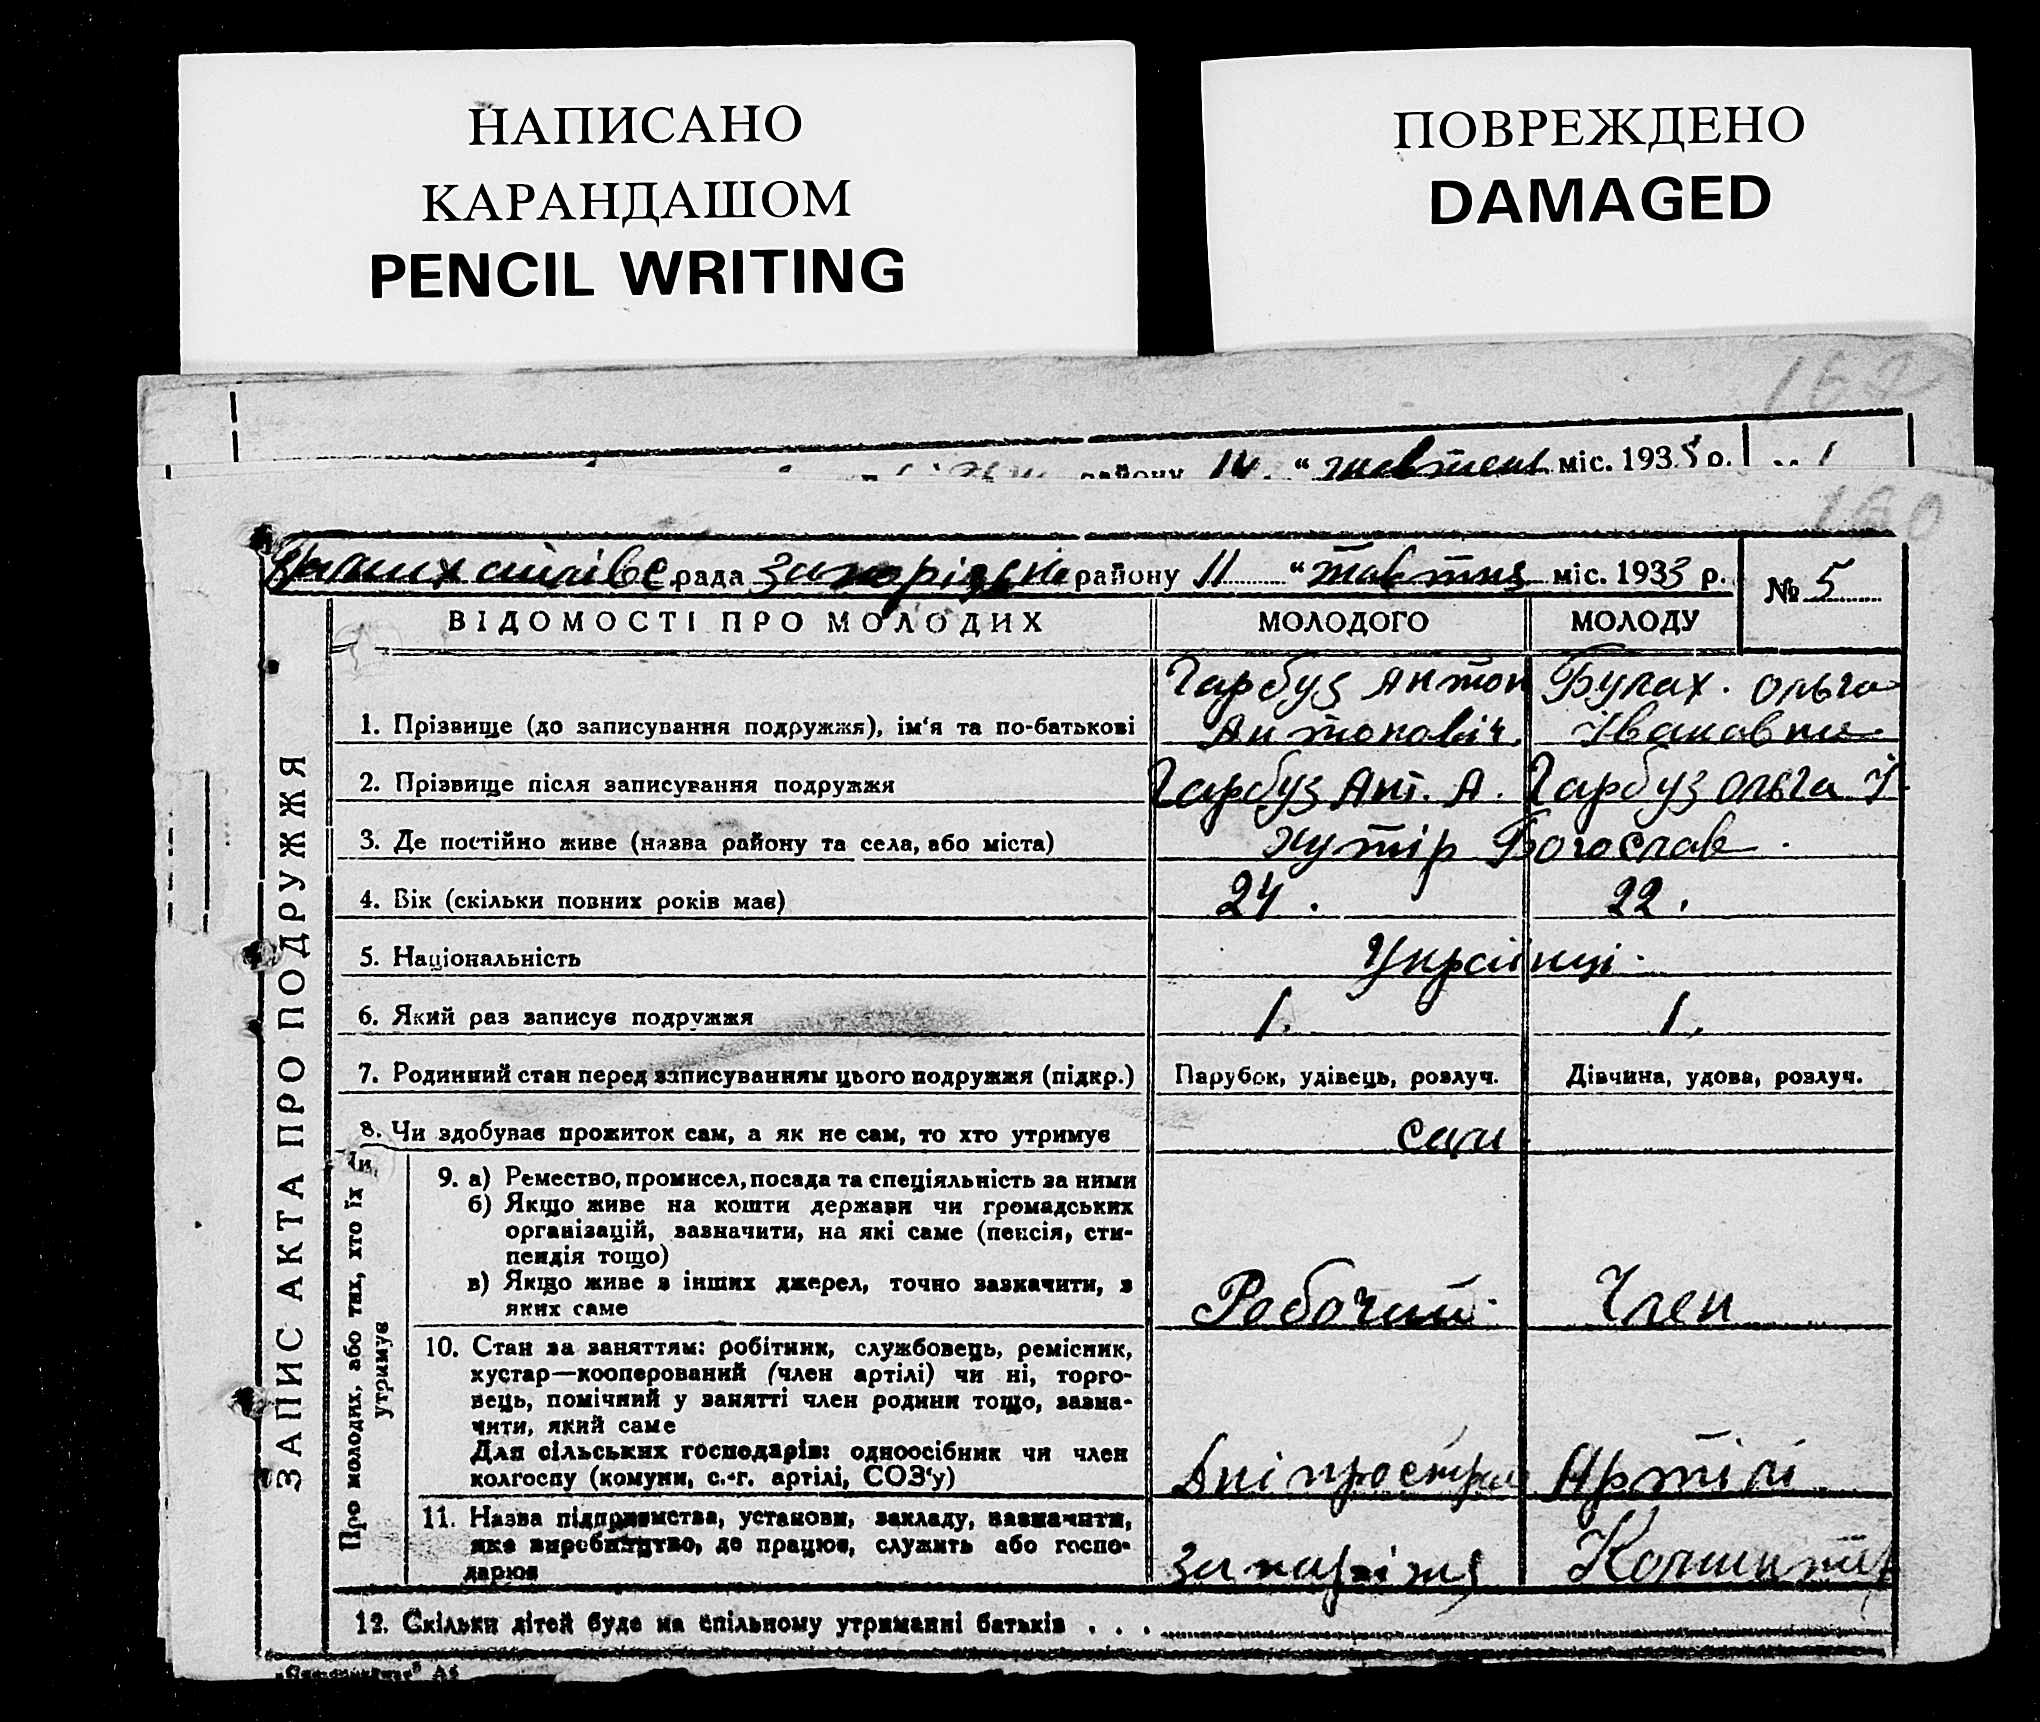 НАПИСАНО
КАРАНДАШОМ
PENCIL WRITING
ПОВРЕЖДЕНО
DAMAGED
162
району 14 " жовтень міс. 1933 р.
160
рада Запорізьк району 11 " жовтня міс. 1933 р.
№ 5
ВІДОМОСТІ ПРО МОЛОДИХ МОЛОДОГО МОЛОДУ
ЗАПИС АКТА ПРО ПОДРУЖЖЯ
Гарбуз Антон Булах. Ольга
1. Прізвище (до записування подружжя), ім'я та по-батькові Антоновіч. Івановна
2. Прізвище після записування подружжя Гарбуз Ант. А. Гарбуз Ольга І.
3. Де постійно живе (назва району та села, або міста) хутір Богослав.
4. Вік (скільки повних років має) 24. 22.
5. Національність Українці.
6. Який раз записує подружжя 1. 1.
7. Родинний стан перед записуванням цього подружжя (підкр.) Парубок, удівець, розлуч. Дівчина, удова, розлуч.
8. Чи здобуває прожиток сам, а як не сам, то хто утримує сами
Про молодих, або тих, хто їх
утримує
9. а) Ремество, промисел, посада та спеціяльність за ними
б) Якщо живе на кошти держави чи громадських
організацій, зазначити, на які саме (пенсія, сти-
пендія тощо)
в) Якщо живе з інших джерел, точно зазначити, з
яких саме Робочий. Член
10. Стан за заняттям: робітник, службовець, ремісник,
кустар—кооперований (член артілі) чи ні, торго-
вець, помічний у занятті член родини тощо, зазна-
чити, який саме
Для сільських господарів: одноосібник чи член
колгоспу (комуни, с.-г. артілі, СОЗ'у) Дніпрострой Артілі
11. Назва підприємства, установи, закладу, зазначити,
яке виробництво, де працює, служить або госпо-
дарює Запоріжя
12. Скільки дітей буде на спільному утриманні батьків . . .